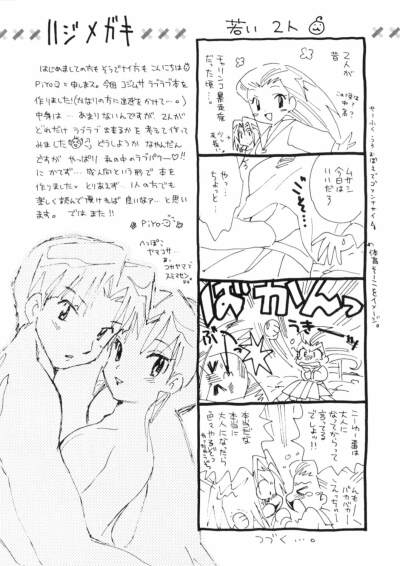 ハジメガキ
はじめましての方も そうでナイ方も こんにちは☺
Piyoコと申します。今回 コジムサ ラブラブ本を
作りました!(かなりの方に迷惑をかけて…。)
中身は… あまりないんですが、2人が
どれだけ ラブラブ出来るかを 考えて作って
みました どうしようか なんかだん
ですが やっぱり 私の中のラブパワー♡!!
に かてず… 成人向という形で本を
作りました。とりあえず 1人の方でも
楽しく読んで頂ければ 良いなァ…と思い
ます。 では また!!
Piyoコ
へっぽこ
ヤマコサ
コカヤマ
スミマセン
若い 2人
昔
2人が
チャリンコ暴走族
だった頃…
ムサシ
今日は
いいだろ
やっ…
ちょっと…
ばかんっ
うきーっ
ぶっ
こーゆー事は
大人に
なってからって
言ってる
でしょッ!!
本当だな
本当に
大人になったら
色々やるぞっ
んもー
バカバカ
えっちー
つづく…。